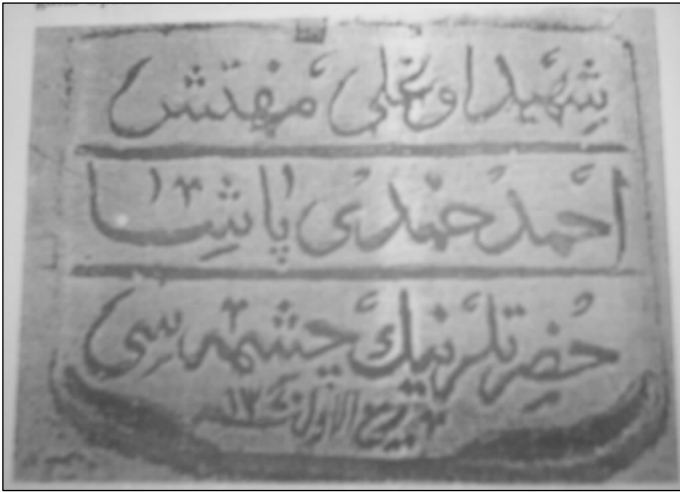 شهيد اوغلى مفتش
احمد حمدى پاشا
حضرتلرينك چشمه سى
ربيع الاول سنه